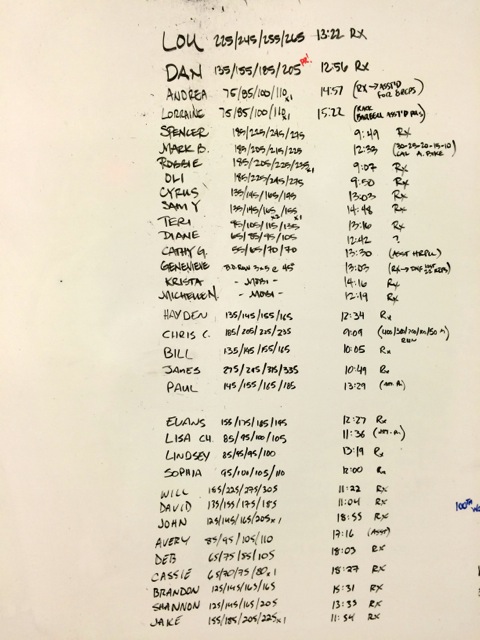 LOU 225/245/255/265 13:22 RX
DAN 135/155/185/205 PR! 12:56 RX
ANDREA 75/85/100/110x1 14:57 (RX → ASST'D FOR 8REPS)
LORRAINE 75/85/100/110x1 15:22 (RACK BARBELL ASST'D PUS)
SPENCER 185/225/245/275 9:49 RX
MARK B. 185/205/215/225 12:33 (30-25-20-15-10 CAL A. BIKE)
ROBBIE 185/205/225/235x1 9:07 RX
OLI 185/225/245/275 9:50 RX
CYRUS 135/145/165/195 13:03 RX
SAMY 135/145/165x2/155x1 14:48 RX
TERI 95/105/115/135 13:16 RX
DIANE 65/85/95/105 12:42 ?
CATHY G. 55/65/70/70 13:30 (ASST HRPU)
GENEVIEVE B.B. ROW 3x5 @ 45# 13:03
KRISTA - MOBI - 14:16 RX
MICHELLE N. - MOBI - 12:19 RX
HAYDEN 135/145/155/165 12:34 RX
CHRIS C. 185/205/215/235 9:09 RUN
BILL 135/145/155/165 10:05 RX
JAMES 275/295/315/335 10:49 RX
PAUL 145/155/165/185 13:29
EVANS 155/175/185/195 12:27 RX
LISA CH. 85/95/100/105 11:36
LINDSEY 85/95/95/100 13:19 RX
SOPHIA 95/100/105/110 12:00 RX
WILL 185/225/275/305 11:22 RX
DAVID 135/155/175/185 11:04 RX
JOHN 125/145/165/205x1 18:55 RX
AVERY 85/95/105/110 17:16 (ASST)
DEB 65/75/85/105 18:03 RX
CASSIE 65/70/75/80x1 18:27 RX
BRANDON 125/145/163/165 15:31 RX
SHANNON 125/145/165/205 13:33 RX
JAKE 155/185/205/225x1 11:54 RX
100TH